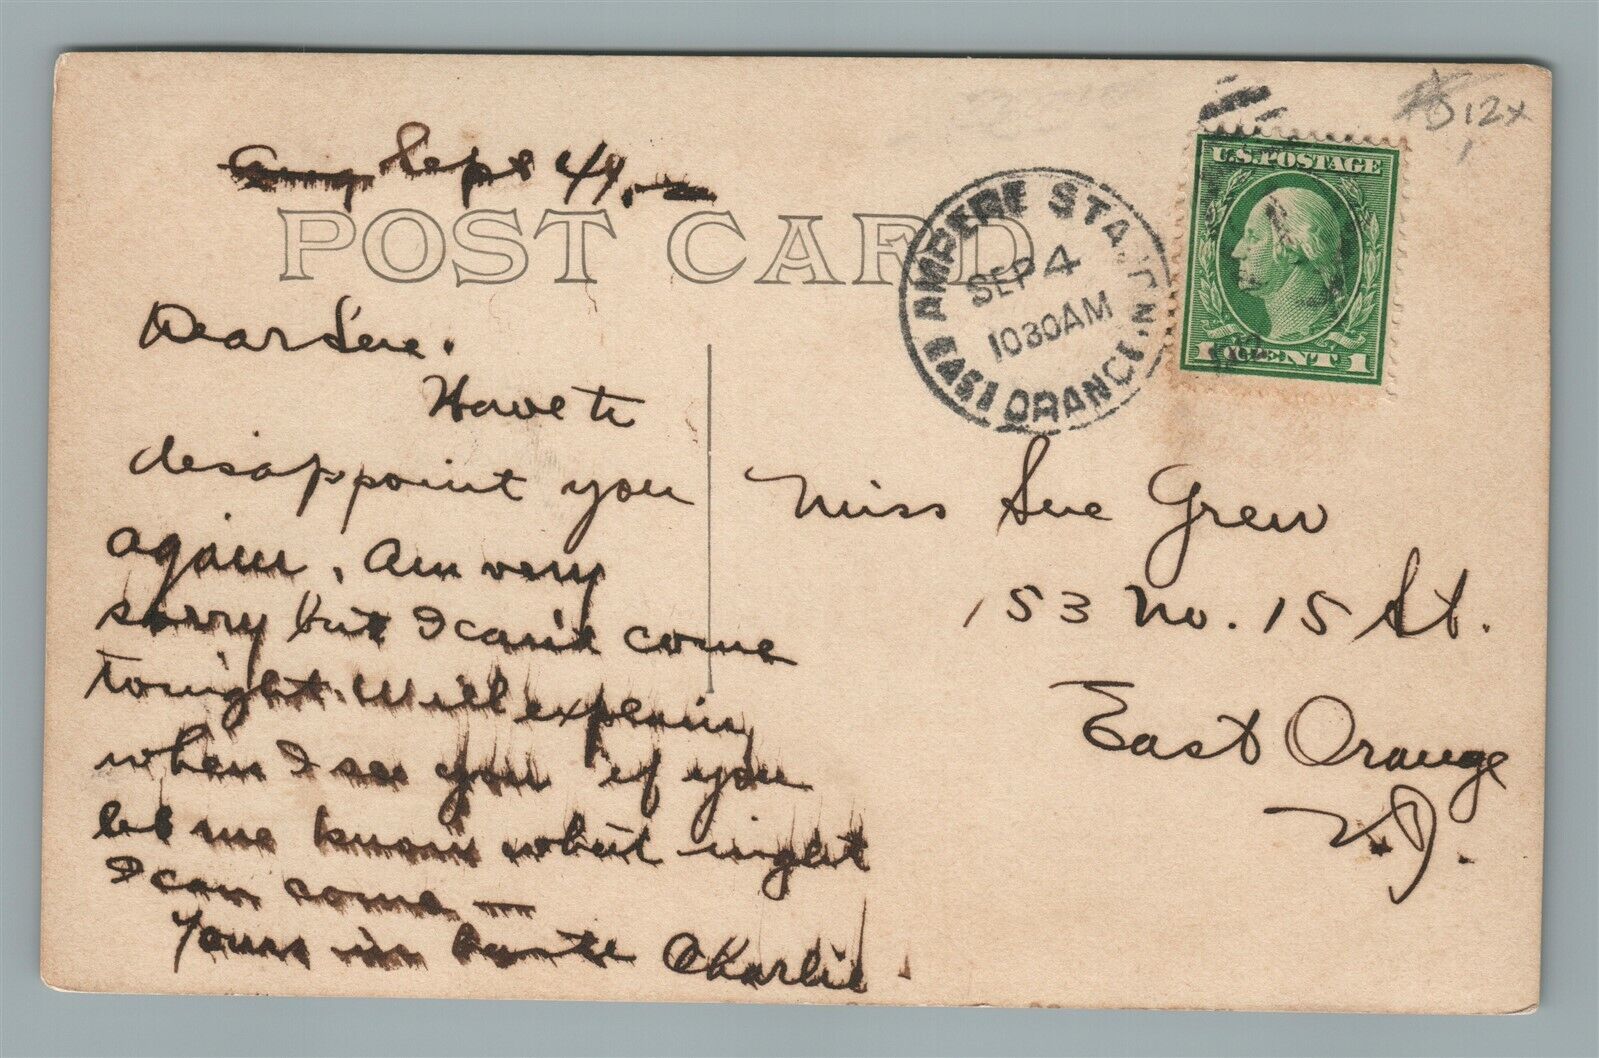 Sept 4
POST CARD
Dear Sue.
Have to
disappoint you
again. Am very
sorry but I can't come
tonight. Will explain
when I see you if you
let me know what night
I can come —
Yours in haste Charlie
AMPERE STATION
SEP 4
1030AM
EAST ORANGE, N.J.
U.S. POSTAGE
1 CENT 1
Miss Sue Grew
153 No. 15 St.
East Orange
N.J.